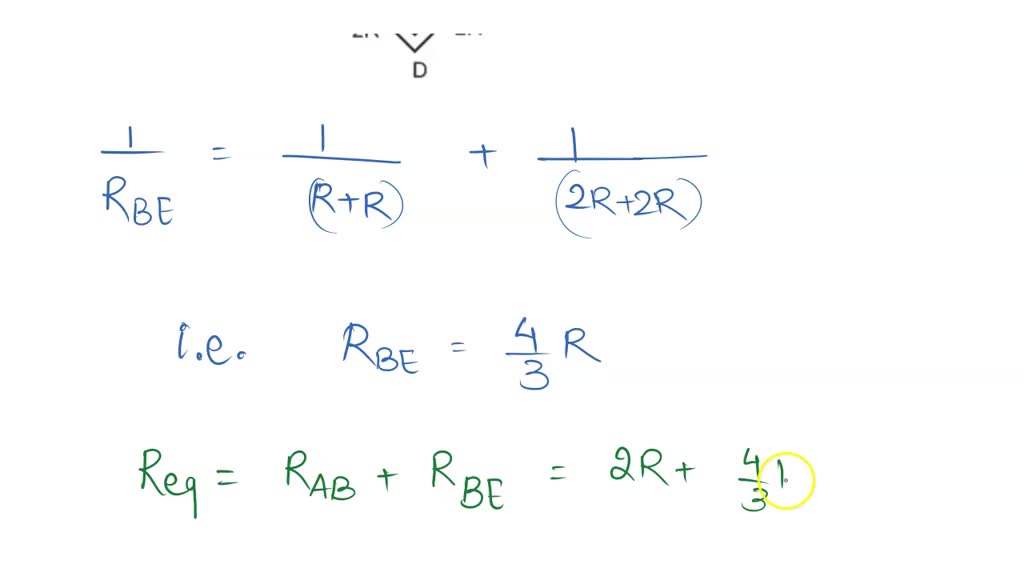 D
1/R_BE = 1/(R+R) + 1/(2R+2R)
i.e. R_BE = 4/3 R
Req = R_AB + R_BE = 2R + 4/3